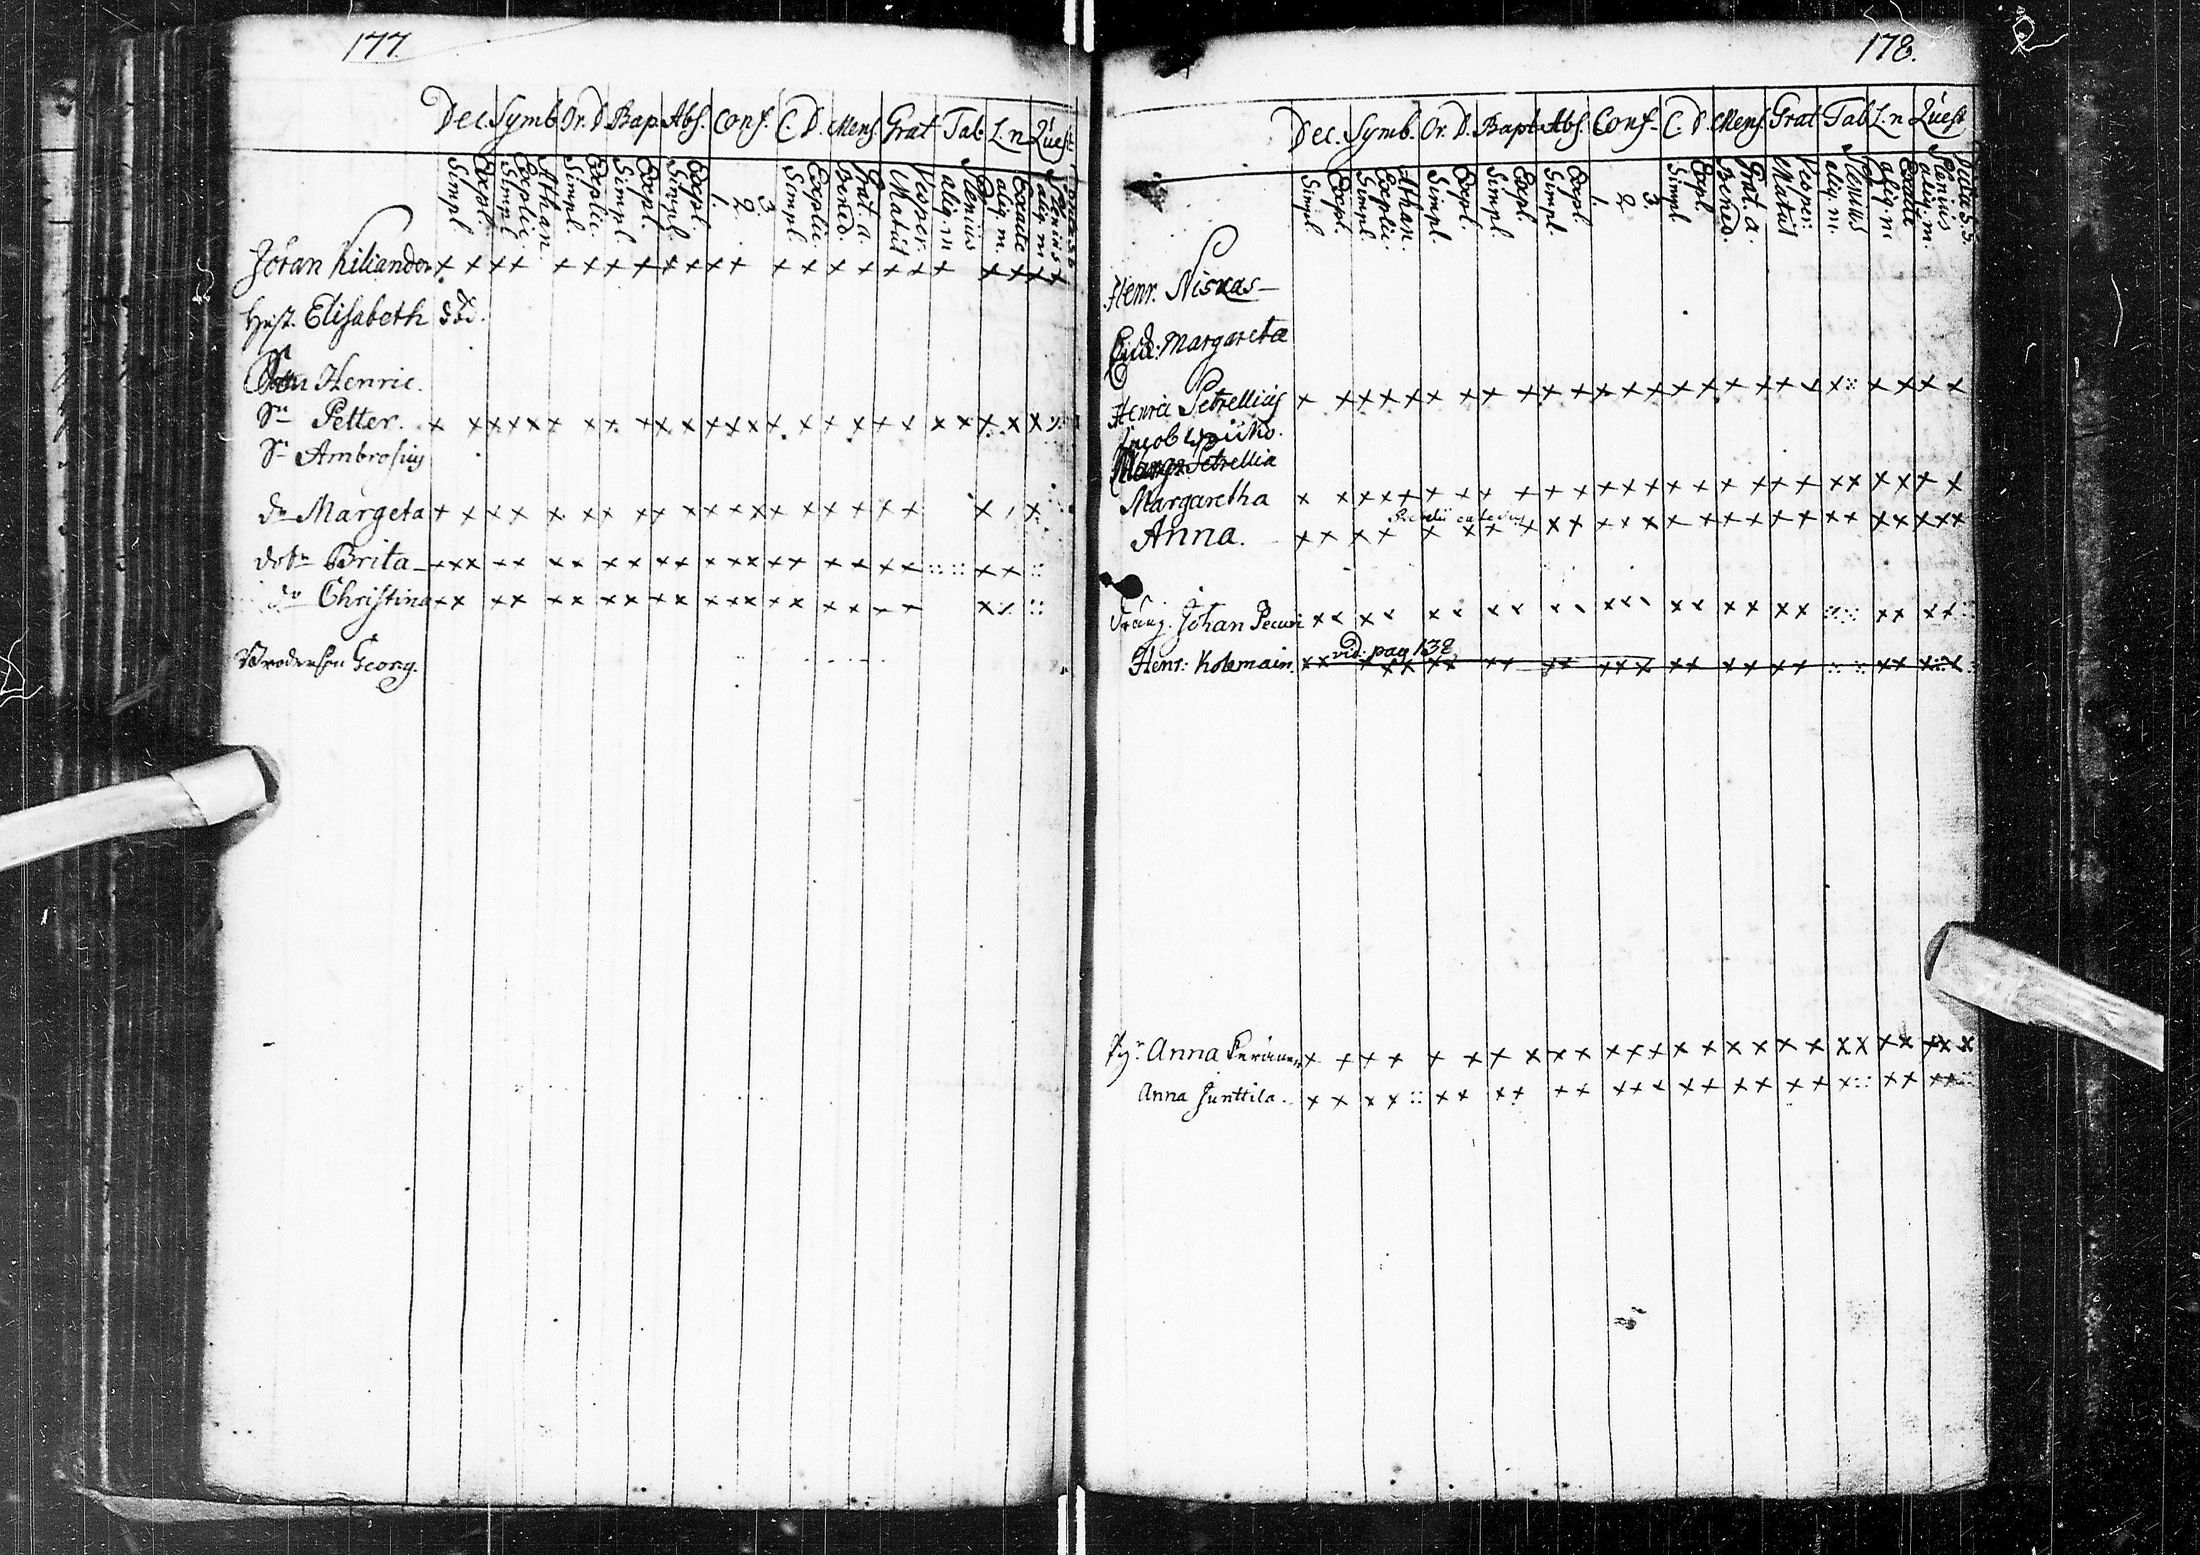 177.
Dec. Symb. Or. D. Bap. Abs. Conf. C. D. Mens. Grat. Tab. L. n Quest.
Simpl. Expl. Simpl. Explic. Athan. Simpl. Explic. Simpl. Expl. Simpl. Expl. 1. 2. 3. Simpl. Explic. Bened. Grat. a. Matut Vesper. aliq. m Plenius aliq. m. Exacte aliq. m Plenius
Jöran Kiliander x x x x x x x x x x x x x x x x x x x x x x x x x
Hust. Elisabeth död.
Henric.
Sn Petter. x x x x x x x x x x x x x x x x x x x x x x x x x
Sn Ambrosius
dr Margeta x x x x x x x x x x x x x x x x x x x x
dotr Brita x x x x x x x x x x x x x x x x x x x x x x x :: :: x x ::
dr Christina x x x x x x x x x x x x x x x x x x x x x ::
Brodersson Georg.
178.
Dec. Symb. Or. D. Bapt. Abs. Conf. C. D. Mens. Grat Tab L. n Quest
Simpl. Expl. Simpl. Explic. Athan. Simpl. Expl. Simpl. Expl. Simpl. Expl. 1. 2. 3. Simpl. Expl Bened. Grat. a. Matut Vesper: aliq. m. Plenius aliq. m Exacte aliq. m. Plenius Dicta S. S.
Henr. Niskas
Margareta
Henric Petrellius x x x x x x x x x x x x x x x x x x x x x x :: x x x x x
Jacob
Petrellia
Margaretha x x x x x x x x x x x x x x x x x x x x x x x x x x x x
Anna. x x x x x x x x x x x x x x x x x x x x x x x x x x x x
Dräng. Johan x x x x x x x x x x x x x x x x x x x :: :: x x x x ::
vid: pag 138
Henr: Kolemain. x x x x x x x x x x x x x x x x x x x x x :: :: x x x x x
Anna x x x x x x x x x x x x x x x x x x x x x x x x x x x
Anna Junttila. x x x x :: x x x x x x x x x x x x x x x x x :: x x x x ::